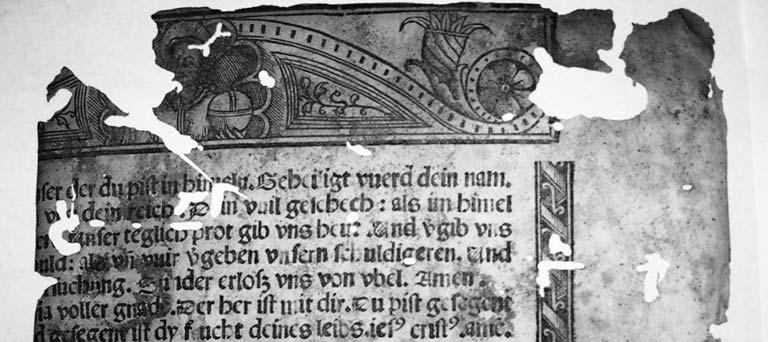 der du pist in himeln. Geheiligt vuerd dein nam.
dein reich. Dein vuil geschech: als im himel
vnser teglich prot gib vns heut. Und v̈gib vns
als vn̄ vuir v̈geben vnsern schuldigeren. Und
Sunder erlosz vns von vbel. Amen.
voller gnad. Der her ist mit dir. Du pist gesegent
gesegent ist dy frucht deines leibs. ies⁹ crist⁹. amē.